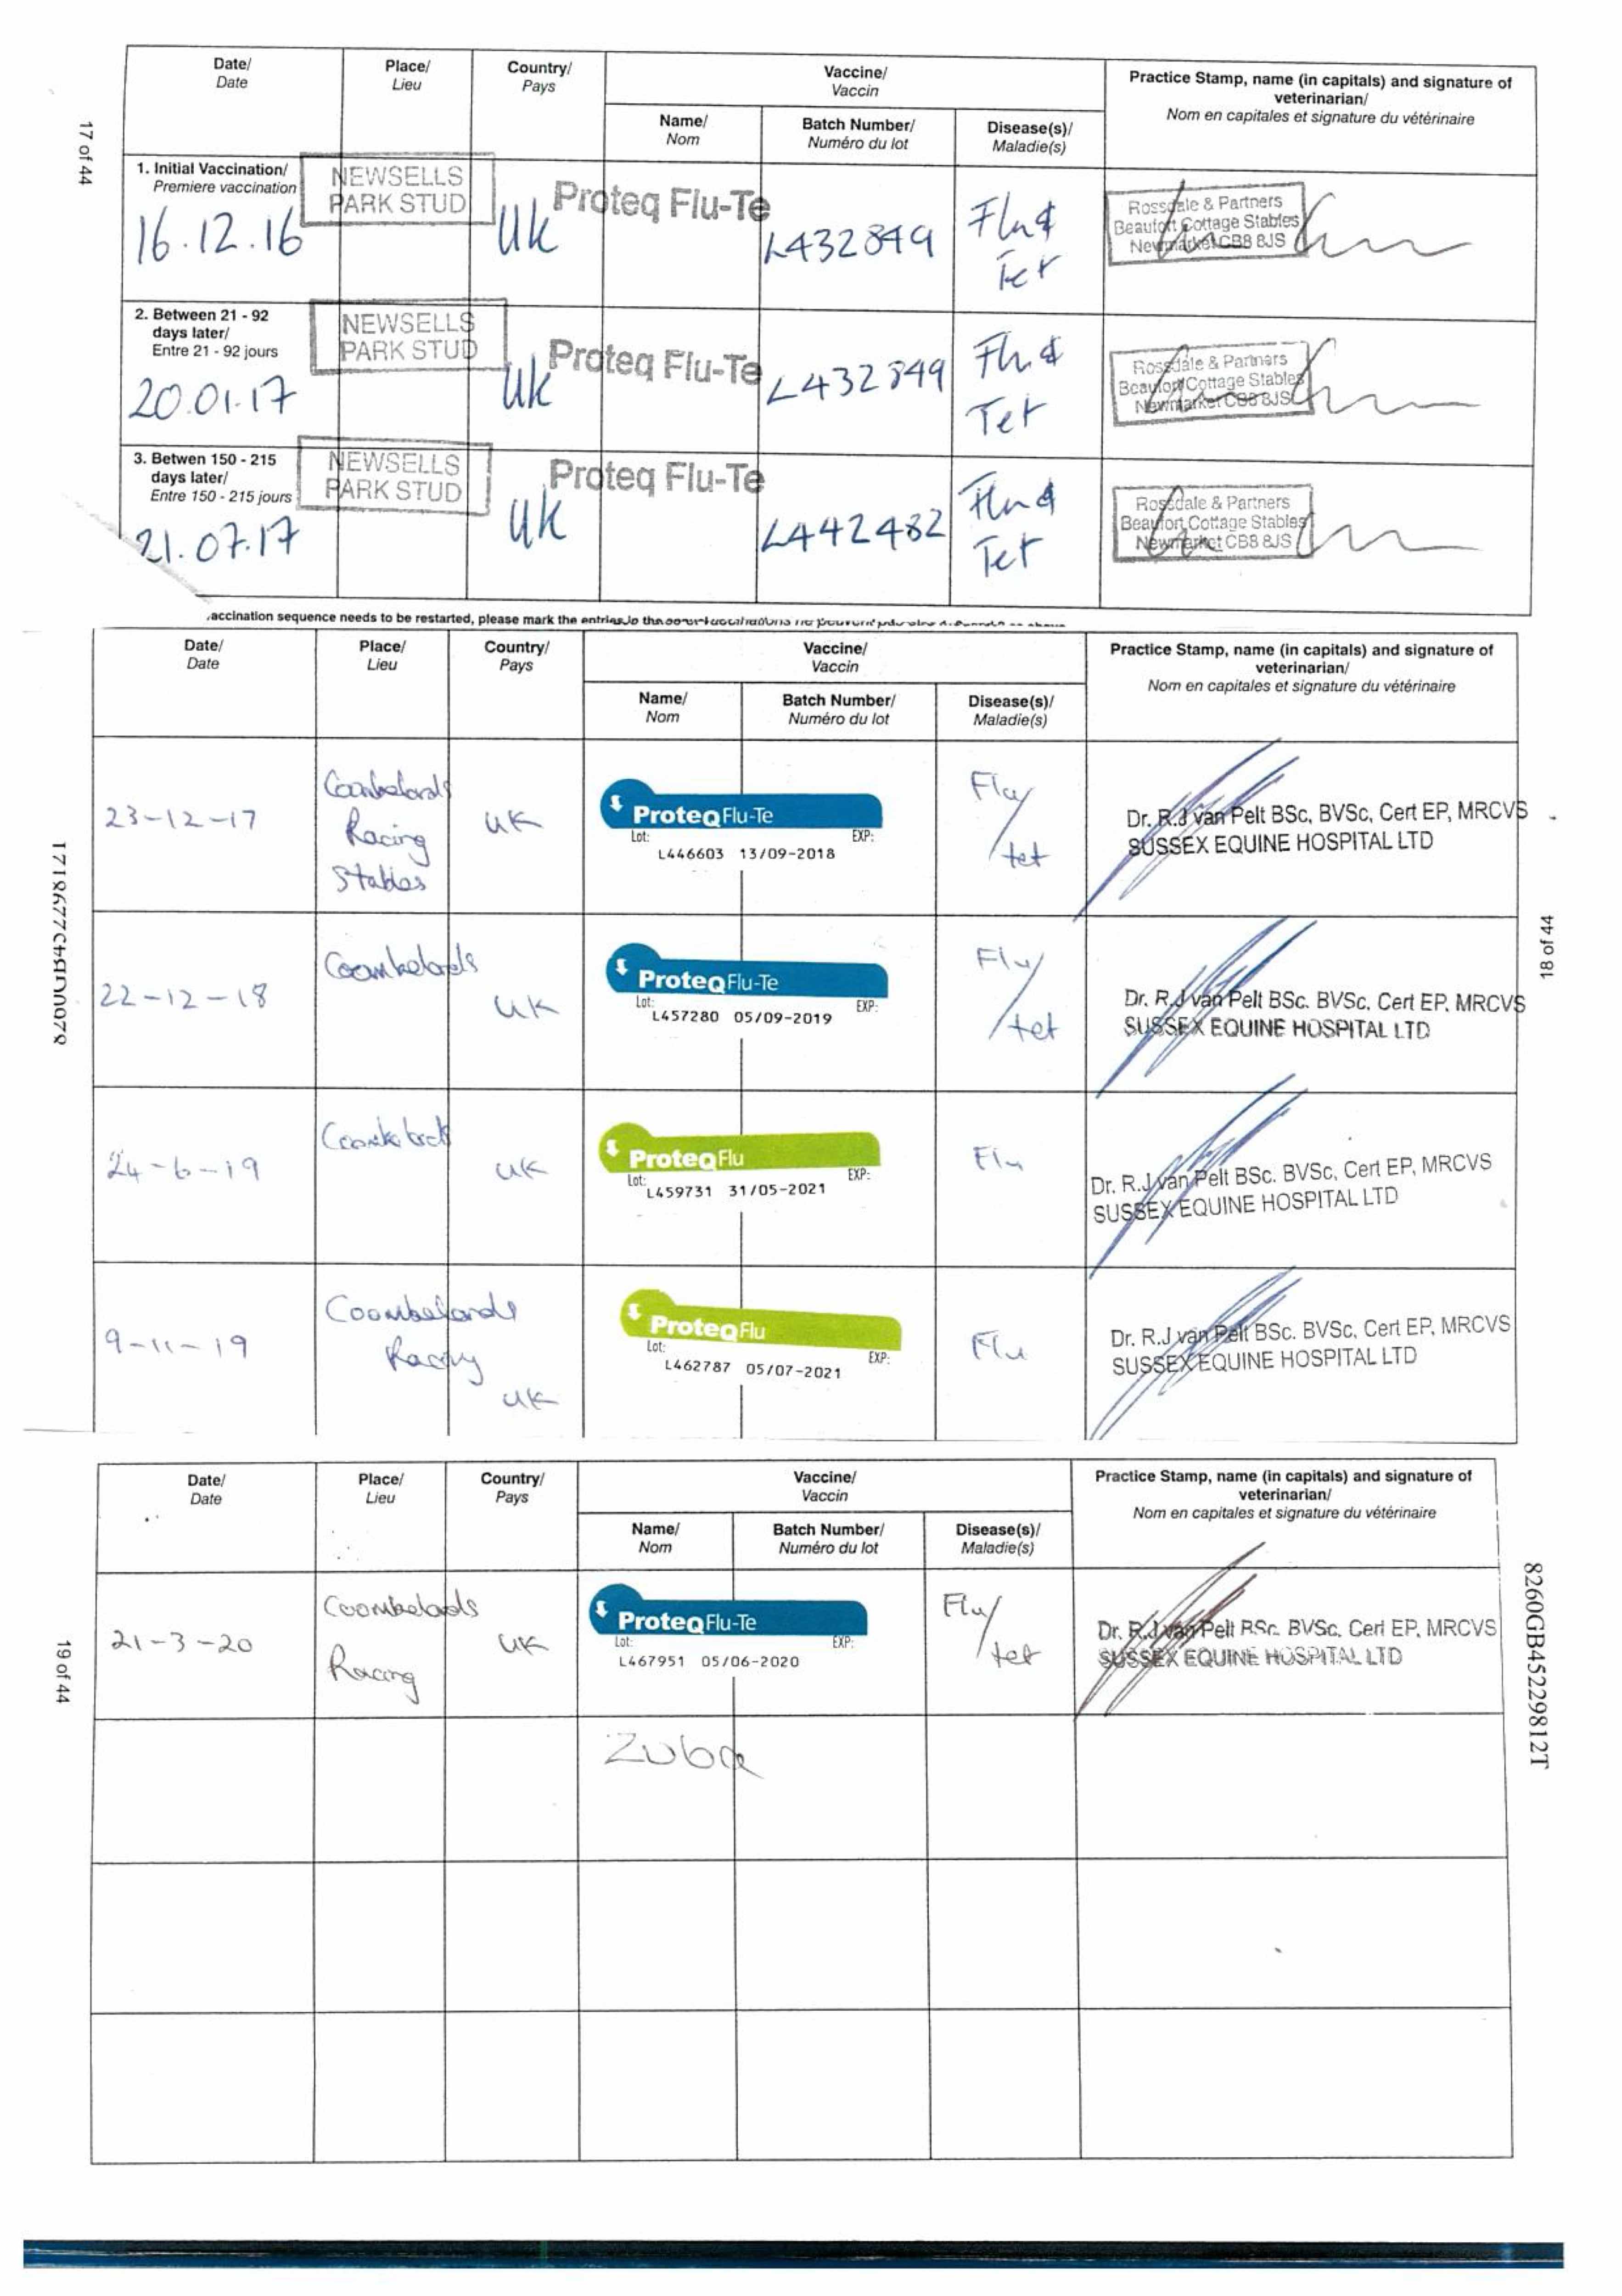 17 of 44
Date/ Place/ Country/ Vaccine/ Practice Stamp, name (in capitals) and signature of
Date Lieu Pays Vaccin veterinarian/
Nom en capitales et signature du vétérinaire
Name/ Batch Number/ Disease(s)/
Nom Numéro du lot Maladie(s)
1. Initial Vaccination/
Premiere vaccination
16.12.16
NEWSELLS
PARK STUD
UK
Proteq Flu-Te
L432849
Flu &
Tet
Rossdale & Partners
Beaufort Cottage Stables
Newmarket CB8 8JS
2. Between 21 - 92
days later/
Entre 21 - 92 jours
20.01.17
NEWSELLS
PARK STUD
UK
Proteq Flu-Te
L432849
Flu &
Tet
Rossdale & Partners
Beaufort Cottage Stables
Newmarket CB8 8JS
3. Betwen 150 - 215
days later/
Entre 150 - 215 jours
21.07.17
NEWSELLS
PARK STUD
UK
Proteq Flu-Te
L442482
Flu &
Tet
Rossdale & Partners
Beaufort Cottage Stables
Newmarket CB8 8JS
accination sequence needs to be restarted, please mark the entries
Date/ Place/ Country/ Vaccine/ Practice Stamp, name (in capitals) and signature of
Date Lieu Pays Vaccin veterinarian/
Nom en capitales et signature du vétérinaire
Name/ Batch Number/ Disease(s)/
Nom Numéro du lot Maladie(s)
18 of 44
23-12-17
Coombelands
Racing
Stables
UK
ProteqFlu-Te
Lot: EXP:
L446603 13/09-2018
Flu/
tet
Dr. R.J van Pelt BSc, BVSc, Cert EP, MRCVS
SUSSEX EQUINE HOSPITAL LTD
22-12-18
Coombelands
UK
ProteqFlu-Te
Lot: EXP:
L457280 05/09-2019
Flu/
tet
Dr. R.J van Pelt BSc. BVSc, Cert EP, MRCVS
SUSSEX EQUINE HOSPITAL LTD
24-6-19
UK
ProteqFlu
Lot: EXP:
L459731 31/05-2021
Flu
Dr. R.J van Pelt BSc. BVSc, Cert EP, MRCVS
SUSSEX EQUINE HOSPITAL LTD
9-11-19
Coombelands
Racing
UK
ProteqFlu
Lot: EXP:
L462787 05/07-2021
Flu
Dr. R.J van Pelt BSc. BVSc, Cert EP, MRCVS
SUSSEX EQUINE HOSPITAL LTD
Date/ Place/ Country/ Vaccine/ Practice Stamp, name (in capitals) and signature of
Date Lieu Pays Vaccin veterinarian/
Nom en capitales et signature du vétérinaire
Name/ Batch Number/ Disease(s)/
Nom Numéro du lot Maladie(s)
19 of 44
8260GB45229812T
21-3-20
Coombelands
Racing
UK
ProteqFlu-Te
Lot: EXP:
L467951 05/06-2020
Flu/
tet
Dr. R.J van Pelt BSc. BVSc, Cert EP, MRCVS
SUSSEX EQUINE HOSPITAL LTD
Zuba